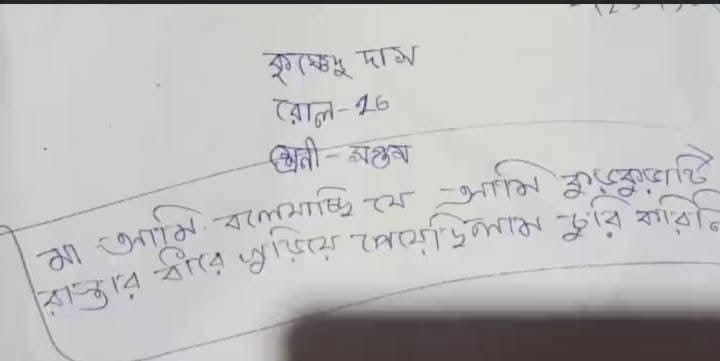 কৃষ্ণেন্দু দাস
রোল-26
শ্রেনী - সপ্তম
মা আমি বলেযাচ্ছি যে আমি কুড়কুড়াটি
রাস্তার ধারে কুড়িয়ে পেয়েছিলাম চুরি করিনি